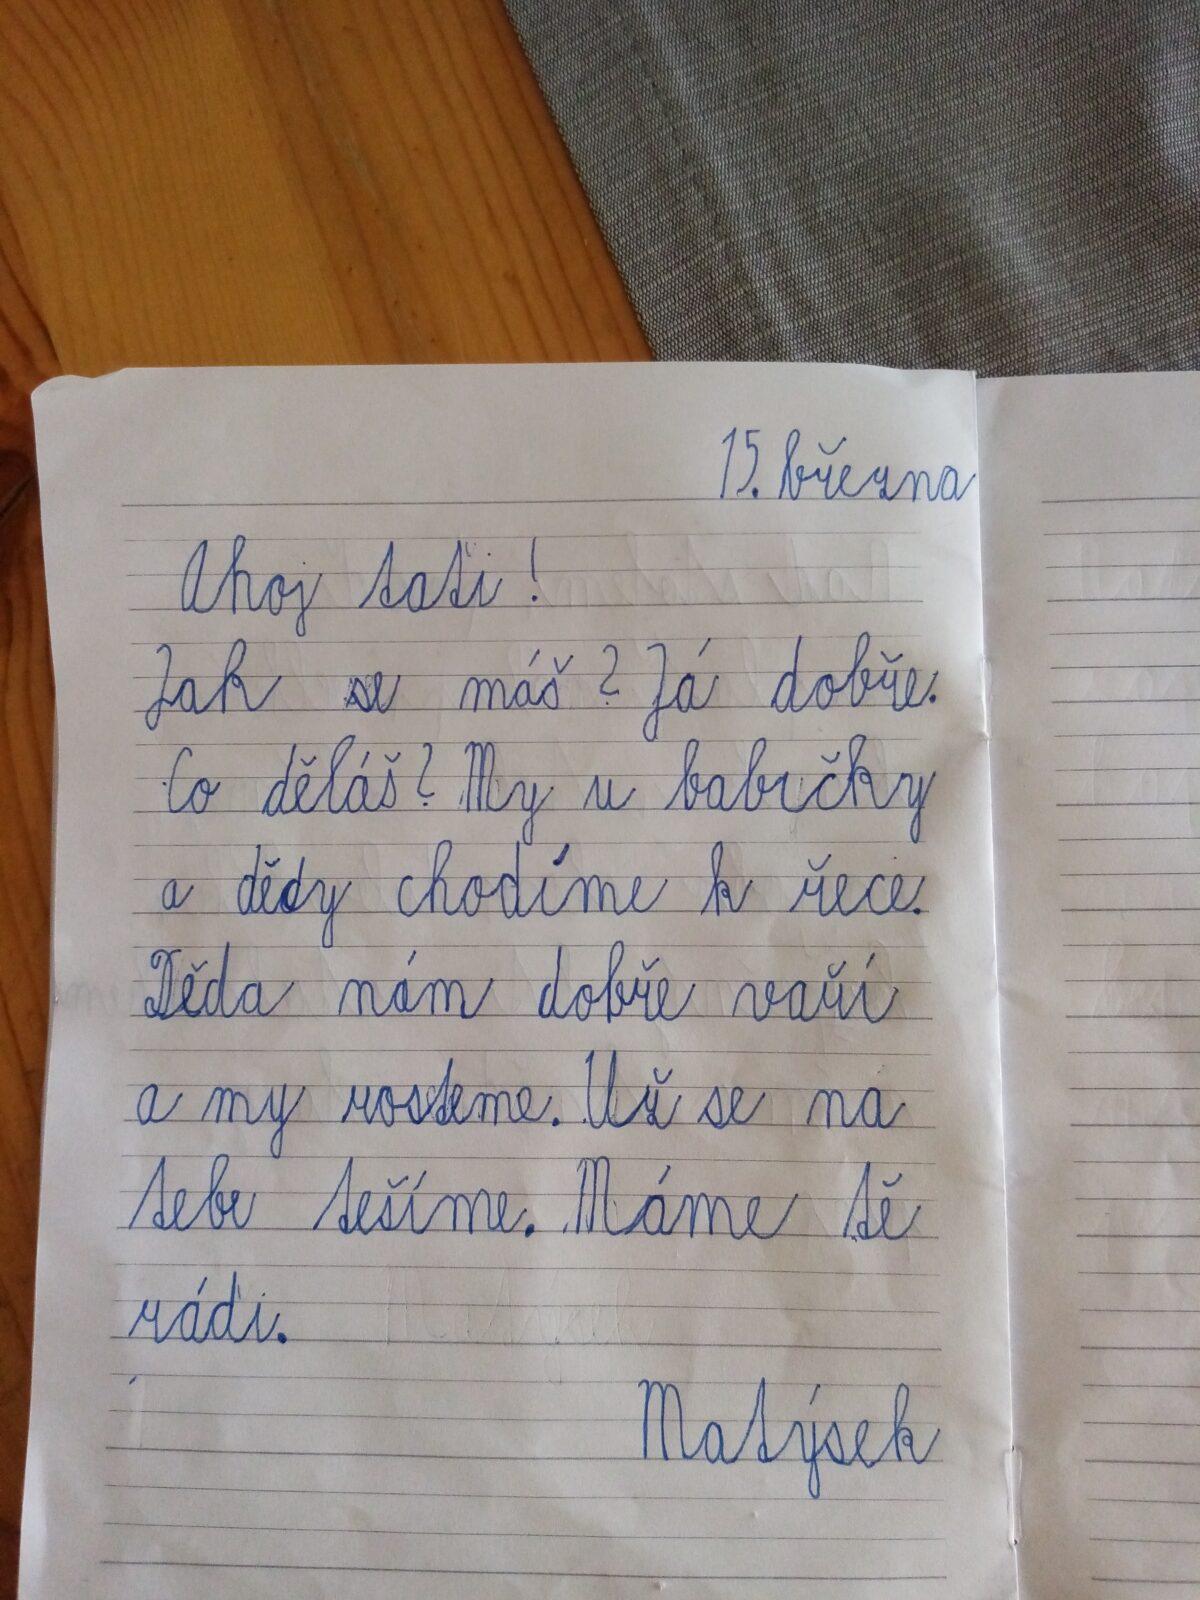 15. března
Ahoj taťi!
Jak se máš? Já dobře.
Co děláš? My u babičky
a dědy chodíme k řece.
Děda nám dobře vaří
a my rosteme. Už se na
tebe těšíme. Máme tě
rádi.
Matýsek